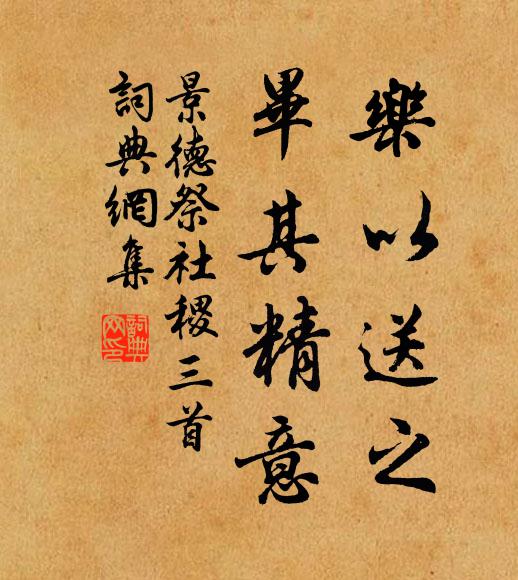 樂以送之
畢其精意
景德祭社稷三首
詞典網集
詞典網印